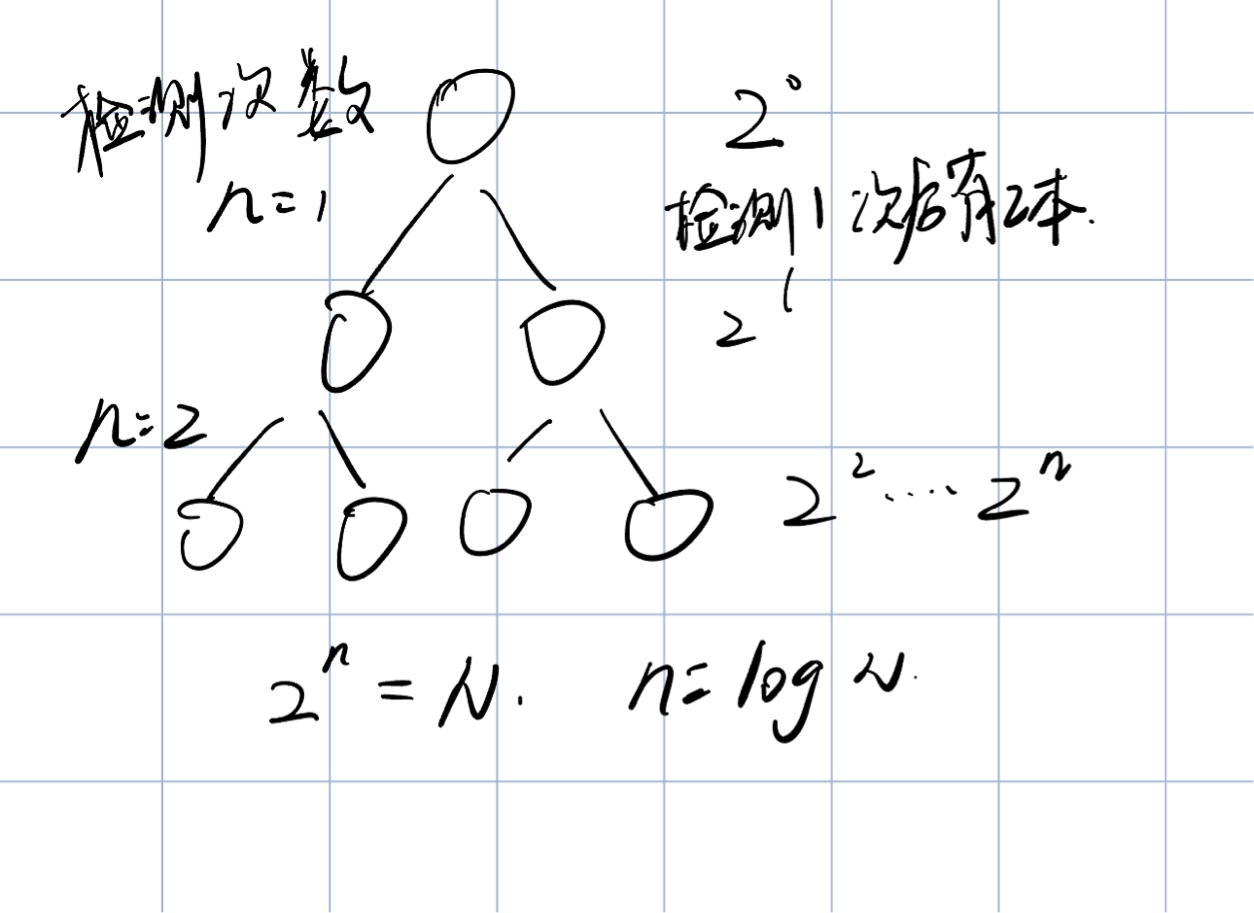 检测次数
2⁰
n=1
检测1次后有2本.
2¹
n=2
2² ····· 2ⁿ
2ⁿ = N. n= log N.